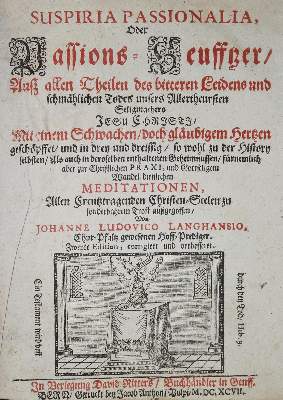 SUSPIRIA PASSIONALIA,
Oder
Passions-Seufftzer/
Auß allen Theilen des bitteren Leidens und
schmählichen Todes unsers Allertheursten
Seligmachers
JESU CHRISTI/
Mit einem Schwachen/ doch gläubigem Hertzen
geschöpffet/ und in drey und dreissig/ so wohl zu der History
selbsten/ als auch in deroselben enthaltenen Geheimnussen/ fürnemlich
aber zur Christlichen PRAXI, und Gottseligem
Wandel dienlichen
MEDITATIONEN,
Allen Creutztragenden Christen-Seelen zu
sonderbarem Trost außgegossen/
Von
JOHANNE LUDOVICO LANGHANSIO,
Chur-Pfaltz gewesenen Hoff-Prediger.
Zweite Edition, corrigiert und verbessert.
Ein Testament wird vest
durch den Tod. Hebr. 9
In Verlegung David Ritters/ Buchhändler in Genff.
BERN/ Getruckt bey Jacob Anthoni Vulpi, M. DC. XCVII.